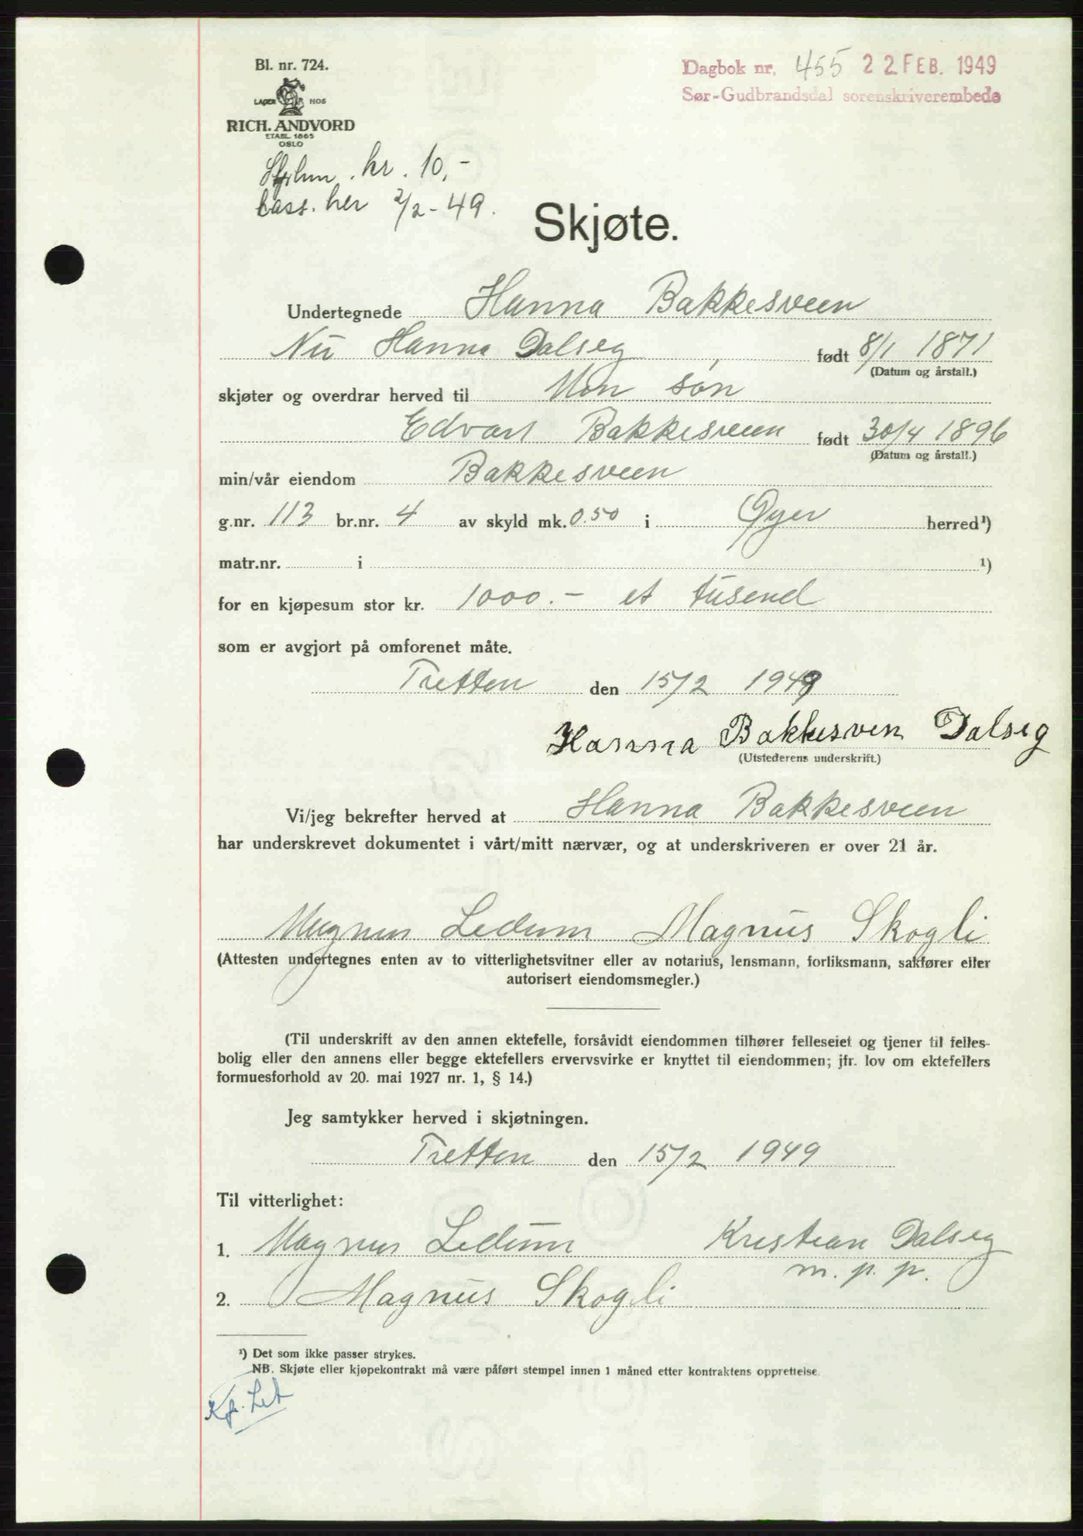 Bl. nr. 724.
LAGER HOS
RICH. ANDVORD
ETABL. 1865
OSLO
Dagbok nr. 455 22 FEB. 1949
Sør-Gudbrandsdal sorenskriverembede
kr. 10,-
cass. her 2/2-49.
Skjøte.
Undertegnede Hanna Bakkesveen
Nu Hanna Dalseg født 8/1 1871
(Datum og årstall.)
skjøter og overdrar herved til Min søn
Edvart Bakkesveen født 30/4 1896
(Datum og årstall.)
min/vår eiendom Bakkesveen
g.nr. 113 br.nr. 4 av skyld mk. 0.50 i Øyer herred¹)
matr.nr. i ¹)
for en kjøpesum stor kr. 1000.- et tusend
som er avgjort på omforenet måte.
Tretten den 15/2 1949
Hanna Bakkesven Dalseg
(Utstederens underskrift.)
Vi/jeg bekrefter herved at Hanna Bakkesveen
har underskrevet dokumentet i vårt/mitt nærvær, og at underskriveren er over 21 år.
Magnus Ledum Magnus Skogli
(Attesten undertegnes enten av to vitterlighetsvitner eller av notarius, lensmann, forliksmann, sakfører eller
autorisert eiendomsmegler.)
(Til underskrift av den annen ektefelle, forsåvidt eiendommen tilhører felleseiet og tjener til felles-
bolig eller den annens eller begge ektefellers ervervsvirke er knyttet til eiendommen; jfr. lov om ektefellers
formuesforhold av 20. mai 1927 nr. 1, § 14.)
Jeg samtykker herved i skjøtningen.
Tretten den 15/2 1949
Til vitterlighet:
1. Magnus Ledum Kristian Dalseg
m. p. p.
2. Magnus Skogli
¹) Det som ikke passer strykes.
NB. Skjøte eller kjøpekontrakt må være påført stempel innen 1 måned etter kontraktens opprettelse.